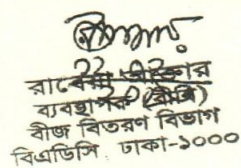 রাবেয়া
ব্যবস্থাপক (বীবি)
বীজ বিতরণ বিভাগ
বিএডিসি ঢাকা-১০০০